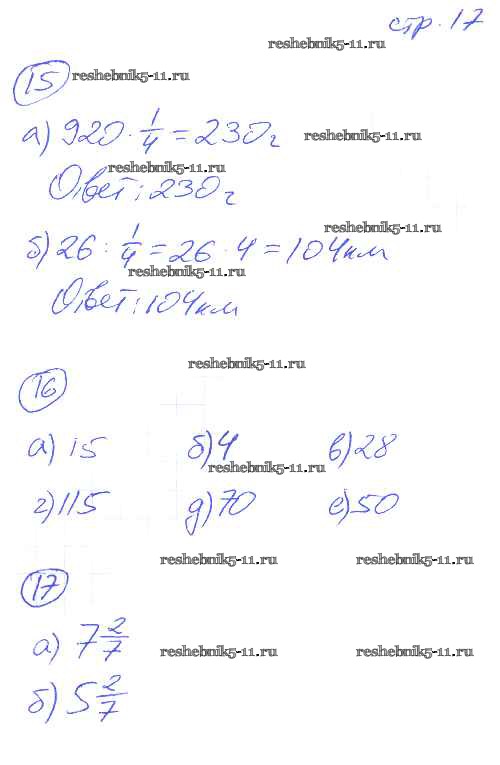 стр. 17
reshebnik5-11.ru
15 reshebnik5-11.ru
а) 920 · 1/4 = 230 г reshebnik5-11.ru
reshebnik5-11.ru
Ответ: 230 г
reshebnik5-11.ru
б) 26 : 1/4 = 26 · 4 = 104 км
reshebnik5-11.ru
Ответ: 104 км
reshebnik5-11.ru
16
а) 15 б) 4 в) 28
reshebnik5-11.ru
г) 115 д) 70 е) 50
reshebnik5-11.ru reshebnik5-11.ru
17
а) 7 2/7 reshebnik5-11.ru reshebnik5-11.ru
б) 5 2/7